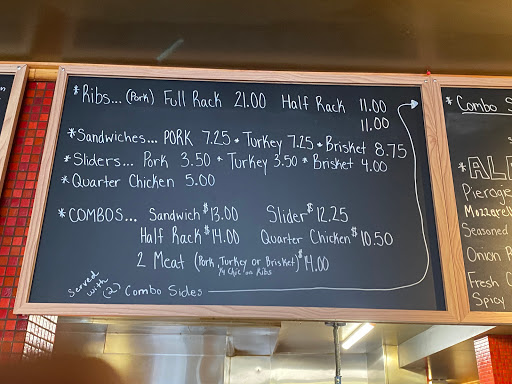 *Ribs... (Pork) Full Rack 21.00 Half Rack 11.00
11.00
*Sandwiches... PORK 7.25 * Turkey 7.25 * Brisket 8.75
*Sliders... Pork 3.50 * Turkey 3.50 * Brisket 4.00
*Quarter Chicken 5.00
*COMBOS... Sandwich $13.00 Slider $12.25
Half Rack $14.00 Quarter Chicken $10.50
2 Meat (Pork, Turkey or Brisket) $14.00
Ribs
Served with (2) Combo Sides
* Combo S
*AL
Pieroge
Mozzarell
Seasoned
Onion R
Fresh C
Spicy